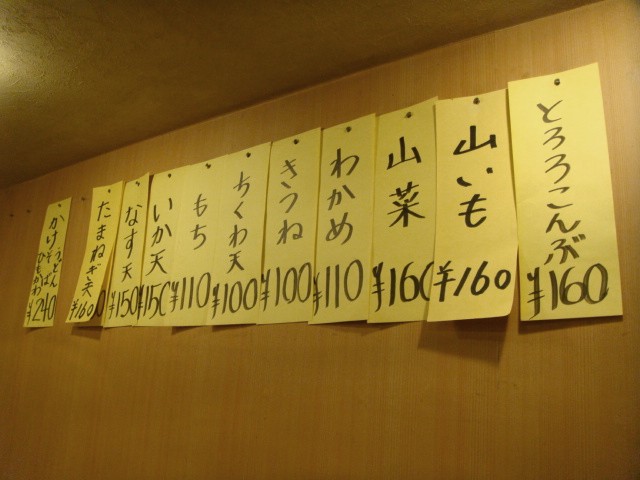 とろろこんぶ
¥160
山いも
¥160
山菜
¥160
わかめ
¥110
きつね
¥100
ちくわ天
¥100
もち
¥110
いか天
¥150
なす天
¥150
たまねぎ天
¥160
かけ
うどん
そば
ひもかわ
¥240